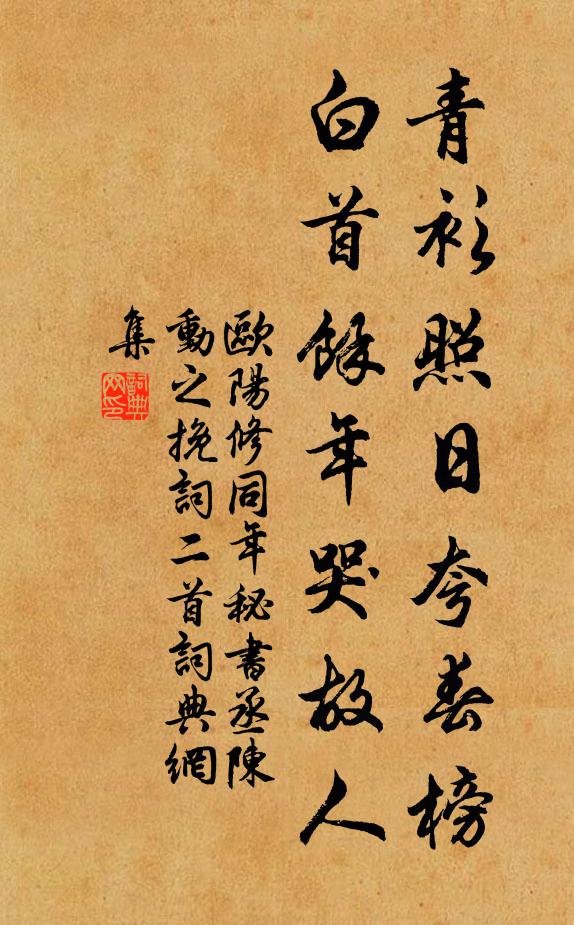 青衫照日夸春榜
白首餘年哭故人
歐陽修同年秘書丞陳
動之挽詞二首詞典網
集
詞典
网印